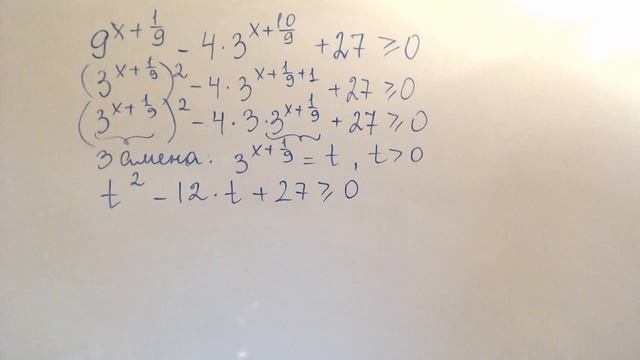 9^{x+\frac{1}{9}} - 4·3^{x+\frac{10}{9}} + 27 ⩾ 0
(3^{x+\frac{1}{9}})^2 - 4·3^{x+\frac{1}{9}+1} + 27 ⩾ 0
(3^{x+\frac{1}{9}})^2 - 4·3·3^{x+\frac{1}{9}} + 27 ⩾ 0
Замена: 3^{x+\frac{1}{9}} = t, t > 0
t^2 - 12·t + 27 ⩾ 0